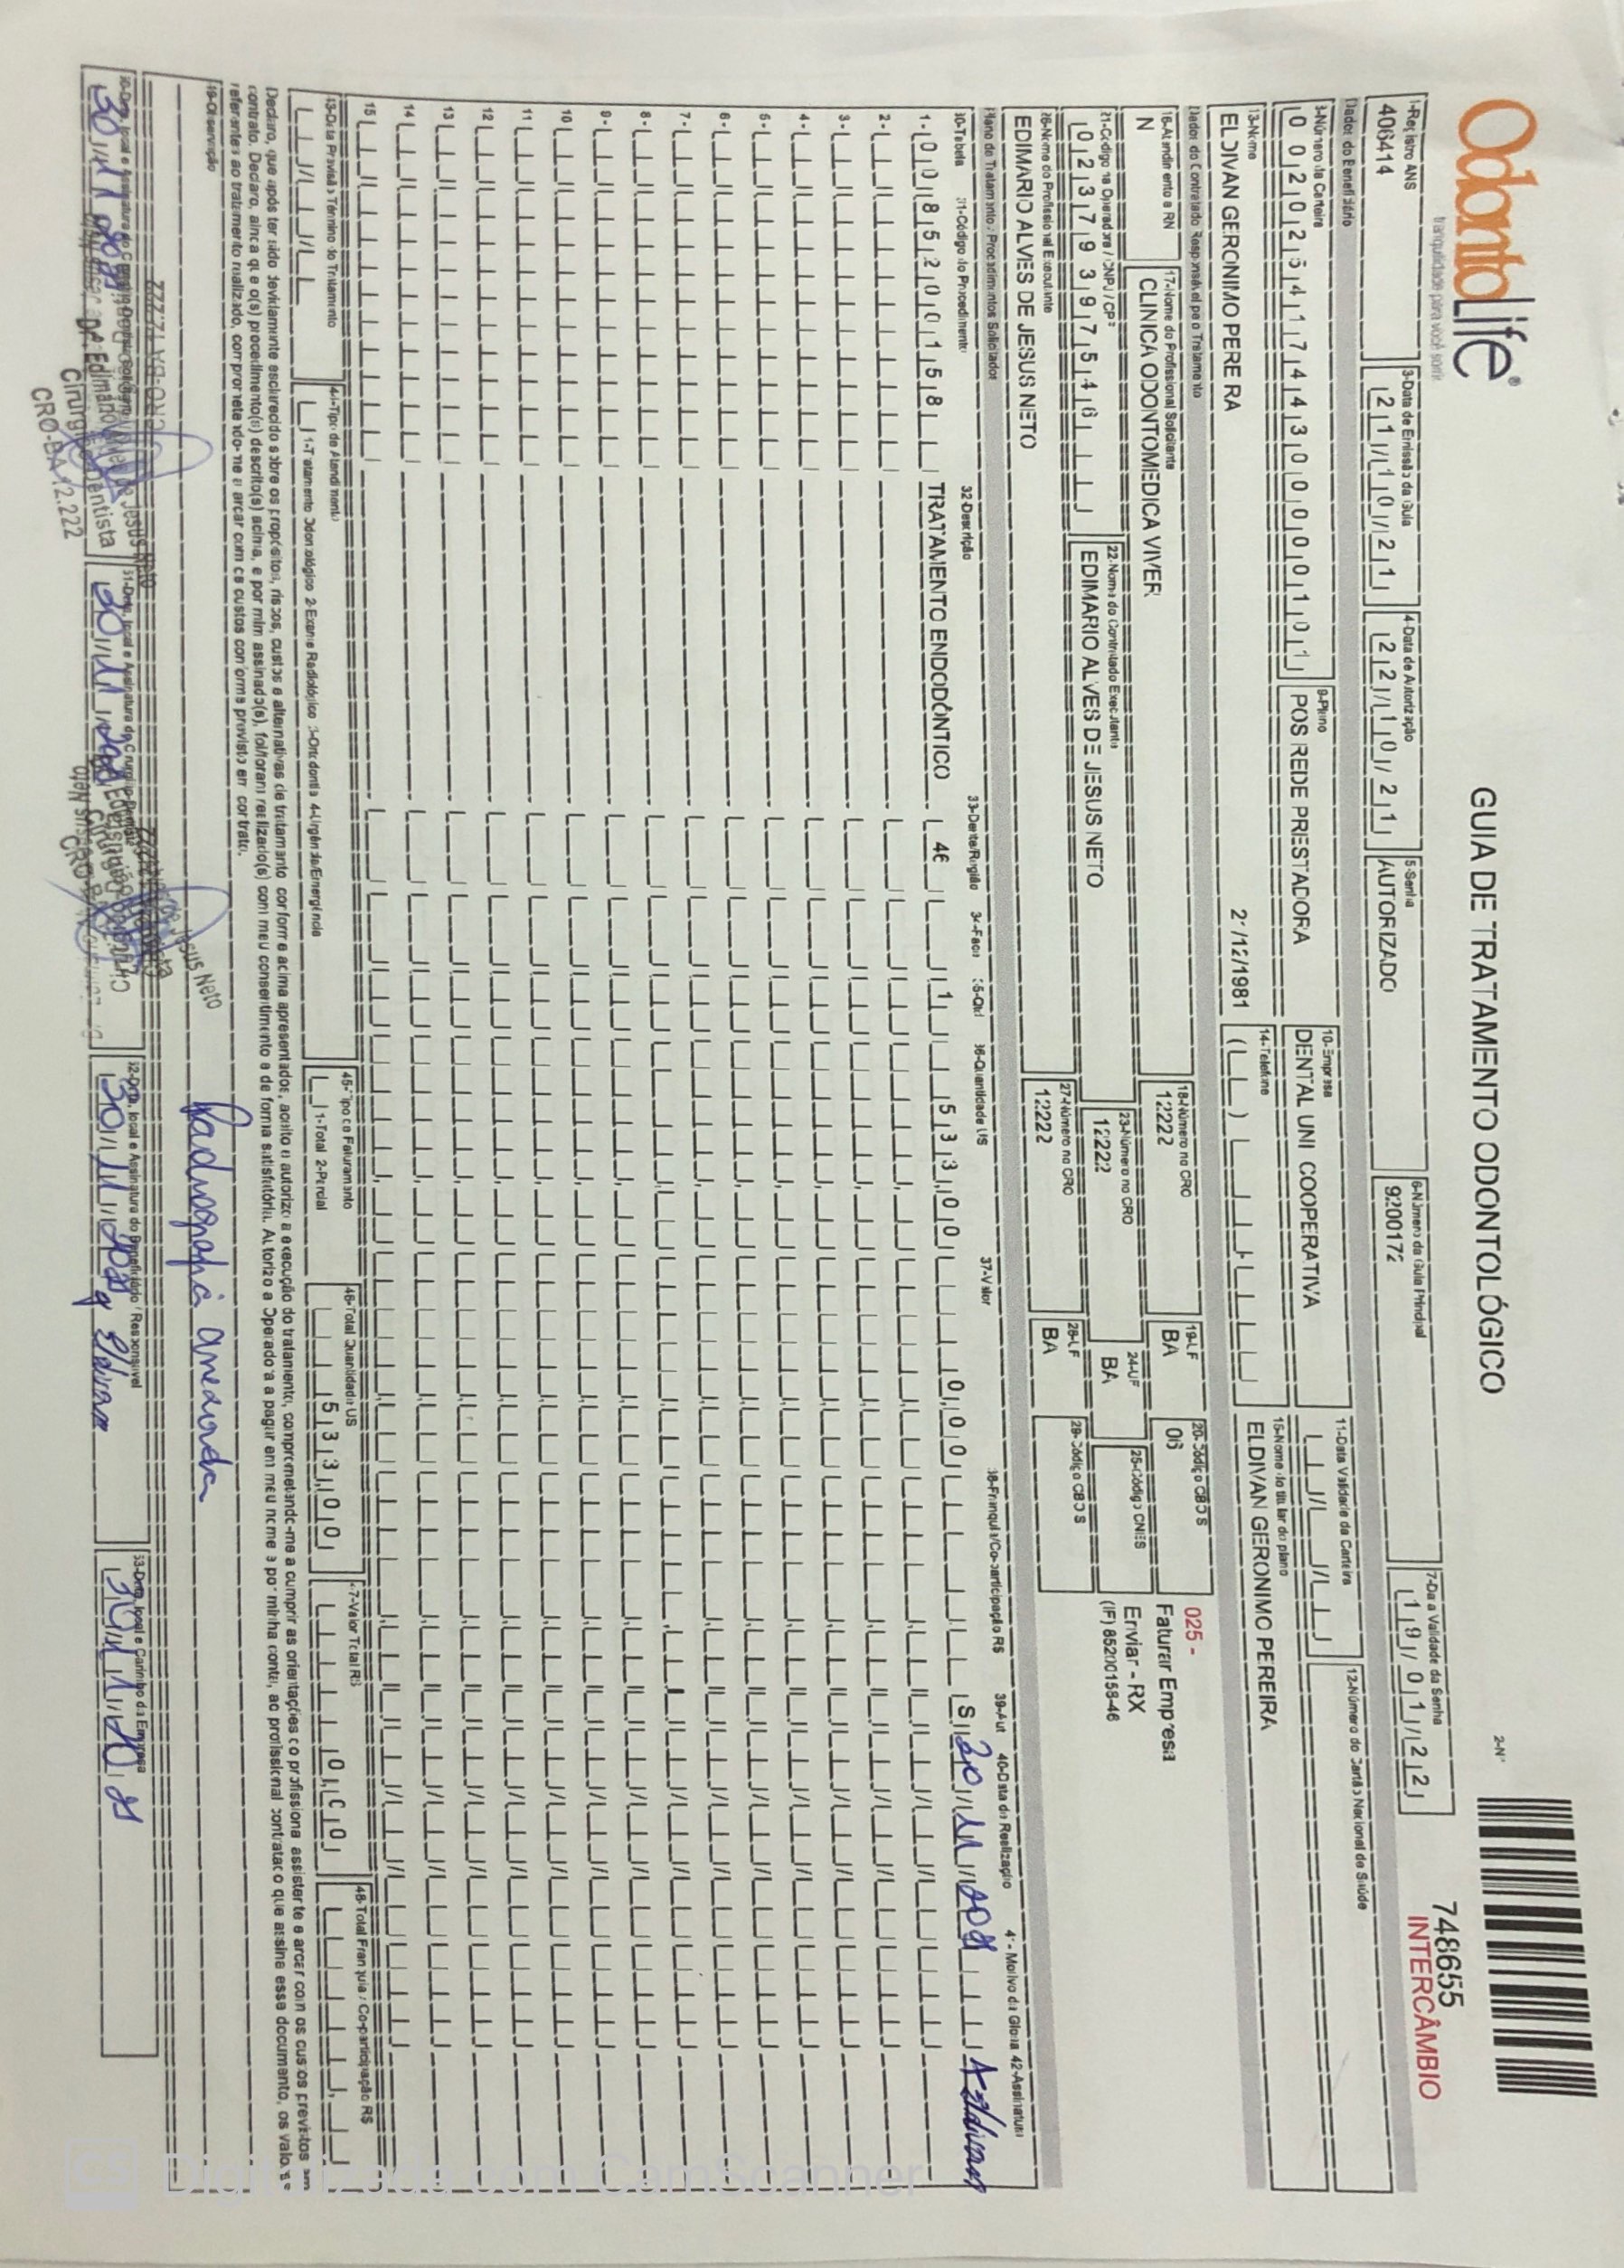 OdontoLife®
tranquilidade para você sorrir
GUIA DE TRATAMENTO ODONTOLÓGICO
2-Nº
748655
INTERCÂMBIO
1-Registro ANS
406414
3-Data de Emissão da Guia
21/10/21
4-Data de Autorização
22/10/21
5-Senha
AUTORIZADO
6-Número da Guia Principal
9200172
7-Data Validade da Senha
19/01/22
Dados do Beneficiário
8-Número da Carteira
00202541744300000101
9-Plano
POS REDE PRESTADORA
10-Empresa
DENTAL UNI COOPERATIVA
11-Data Validade da Carteira
12-Número do Cartão Nacional de Saúde
13-Nome
ELDIVAN GERONIMO PEREIRA
21/12/1981
14-Telefone
15-Nome do titular do plano
ELDIVAN GERONIMO PEREIRA
Dados do Contratado Responsável pelo Tratamento
16-Atendimento a RN
N
17-Nome do Profissional Solicitante
CLINICA ODONTOMEDICA VIVER
18-Número no CRO
12222
19-UF
BA
20-Código CBO S
06
025 -
Faturar Empresa
Enviar - RX
(IF) 85200158-46
21-Código na Operadora / CNPJ / CPF
02379397546
22-Nome do Contratado Executante
EDIMARIO ALVES DE JESUS NETO
23-Número no CRO
12222
24-UF
BA
25-Código CNES
26-Nome do Profissional Executante
EDIMARIO ALVES DE JESUS NETO
27-Número no CRO
12222
28-UF
BA
29-Código CBO S
Plano de Tratamento / Procedimentos Solicitados
30-Tabela 31-Código do Procedimento 32-Descrição 33-Dente/Região 34-Face 35-Qtd 36-Quantidade US 37-Valor 38-Franquia/Co-participação R$ 39-Aut 40-Data de Realização 41-Motivo da Glosa 42-Assinatura
1- 00 85200158 TRATAMENTO ENDODÔNTICO 46 1 533,00 0,00 S Eldivan
2-
3-
4-
5-
6-
7-
8-
9-
10
11
12
13
14
15
43-Data Prevista Término do Tratamento
44-Tipo de Atendimento
1-Tratamento Odontológico 2-Exame Radiológico 3-Ortodontia 4-Urgência/Emergência
45-Tipo de Faturamento
1-Total 2-Parcial
46-Total Quantidade US
533,00
47-Valor Total R$
0,00
48-Total Franquia / Co-participação R$
Declaro, que após ter sido devidamente esclarecido sobre os propósitos, riscos, custos e alternativas de tratamento conforme acima apresentados, aceito e autorizo a execução do tratamento, comprometendo-me a cumprir as orientações do profissional assistente e arcar com os custos previstos em
contrato. Declaro, ainda que o(s) procedimento(s) descrito(s) acima, e por mim assinado(s), foi/foram realizado(s) com meu consentimento e de forma satisfatória. Autorizo a Operadora a pagar em meu nome e por minha conta, ao profissional contratado que assina esse documento, os valores
referentes ao tratamento realizado, comprometendo-me a arcar com os custos conforme previsto em contrato.
49-Observação
Radiografia anexada
50-Data, local e Assinatura do Cirurgião-Dentista Solicitante
Dr. Edimário Alves de Jesus Neto
Cirurgião Dentista
CRO-BA 12.222
51-Data, local e Assinatura do Cirurgião-Dentista
52-Data, local e Assinatura do Beneficiário / Responsável
Eldivan
53-Data, local e Carimbo da Empresa
Digitalizado com CamScanner